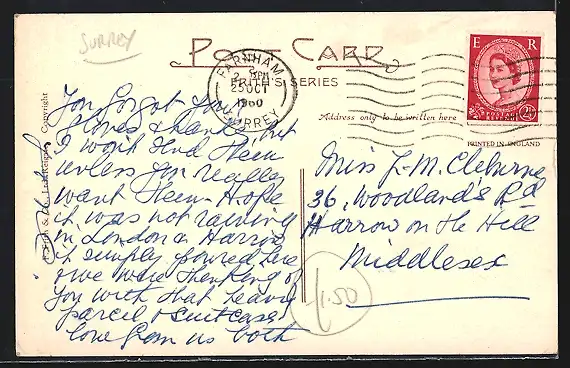 SURREY
POST CARD
FRITH'S SERIES
FARNHAM
2 - PM
25 OCT
1960
SURREY
E R
POSTAGE
2½D
Address only to be written here
PRINTED IN ENGLAND
Reigate Copyright
You forgot your
gloves & hanks, but
I won't send them
unless you really
want them - Hope
it was not raining
in London & Harrow
it simply poured here
& we were thinking of
you with that heavy
parcel & suitcase
love from us both
Miss J. M. Cleburne
36, Woodlands Rd
Harrow on the Hill
Middlesex
£1.50